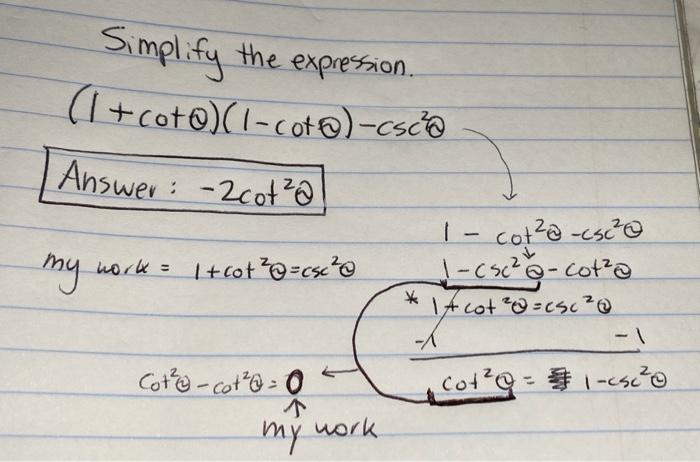 Simplify the expression.
(1+cotθ)(1-cotθ)-csc²θ
Answer: -2cot²θ
1 - cot²θ-csc²θ
my work = 1+cot²θ=csc²θ
1-csc²θ-cot²θ
* 1+cot²θ=csc²θ
-1 -1
cot²θ = 1-csc²θ
cot²θ-cot²θ=0
my work